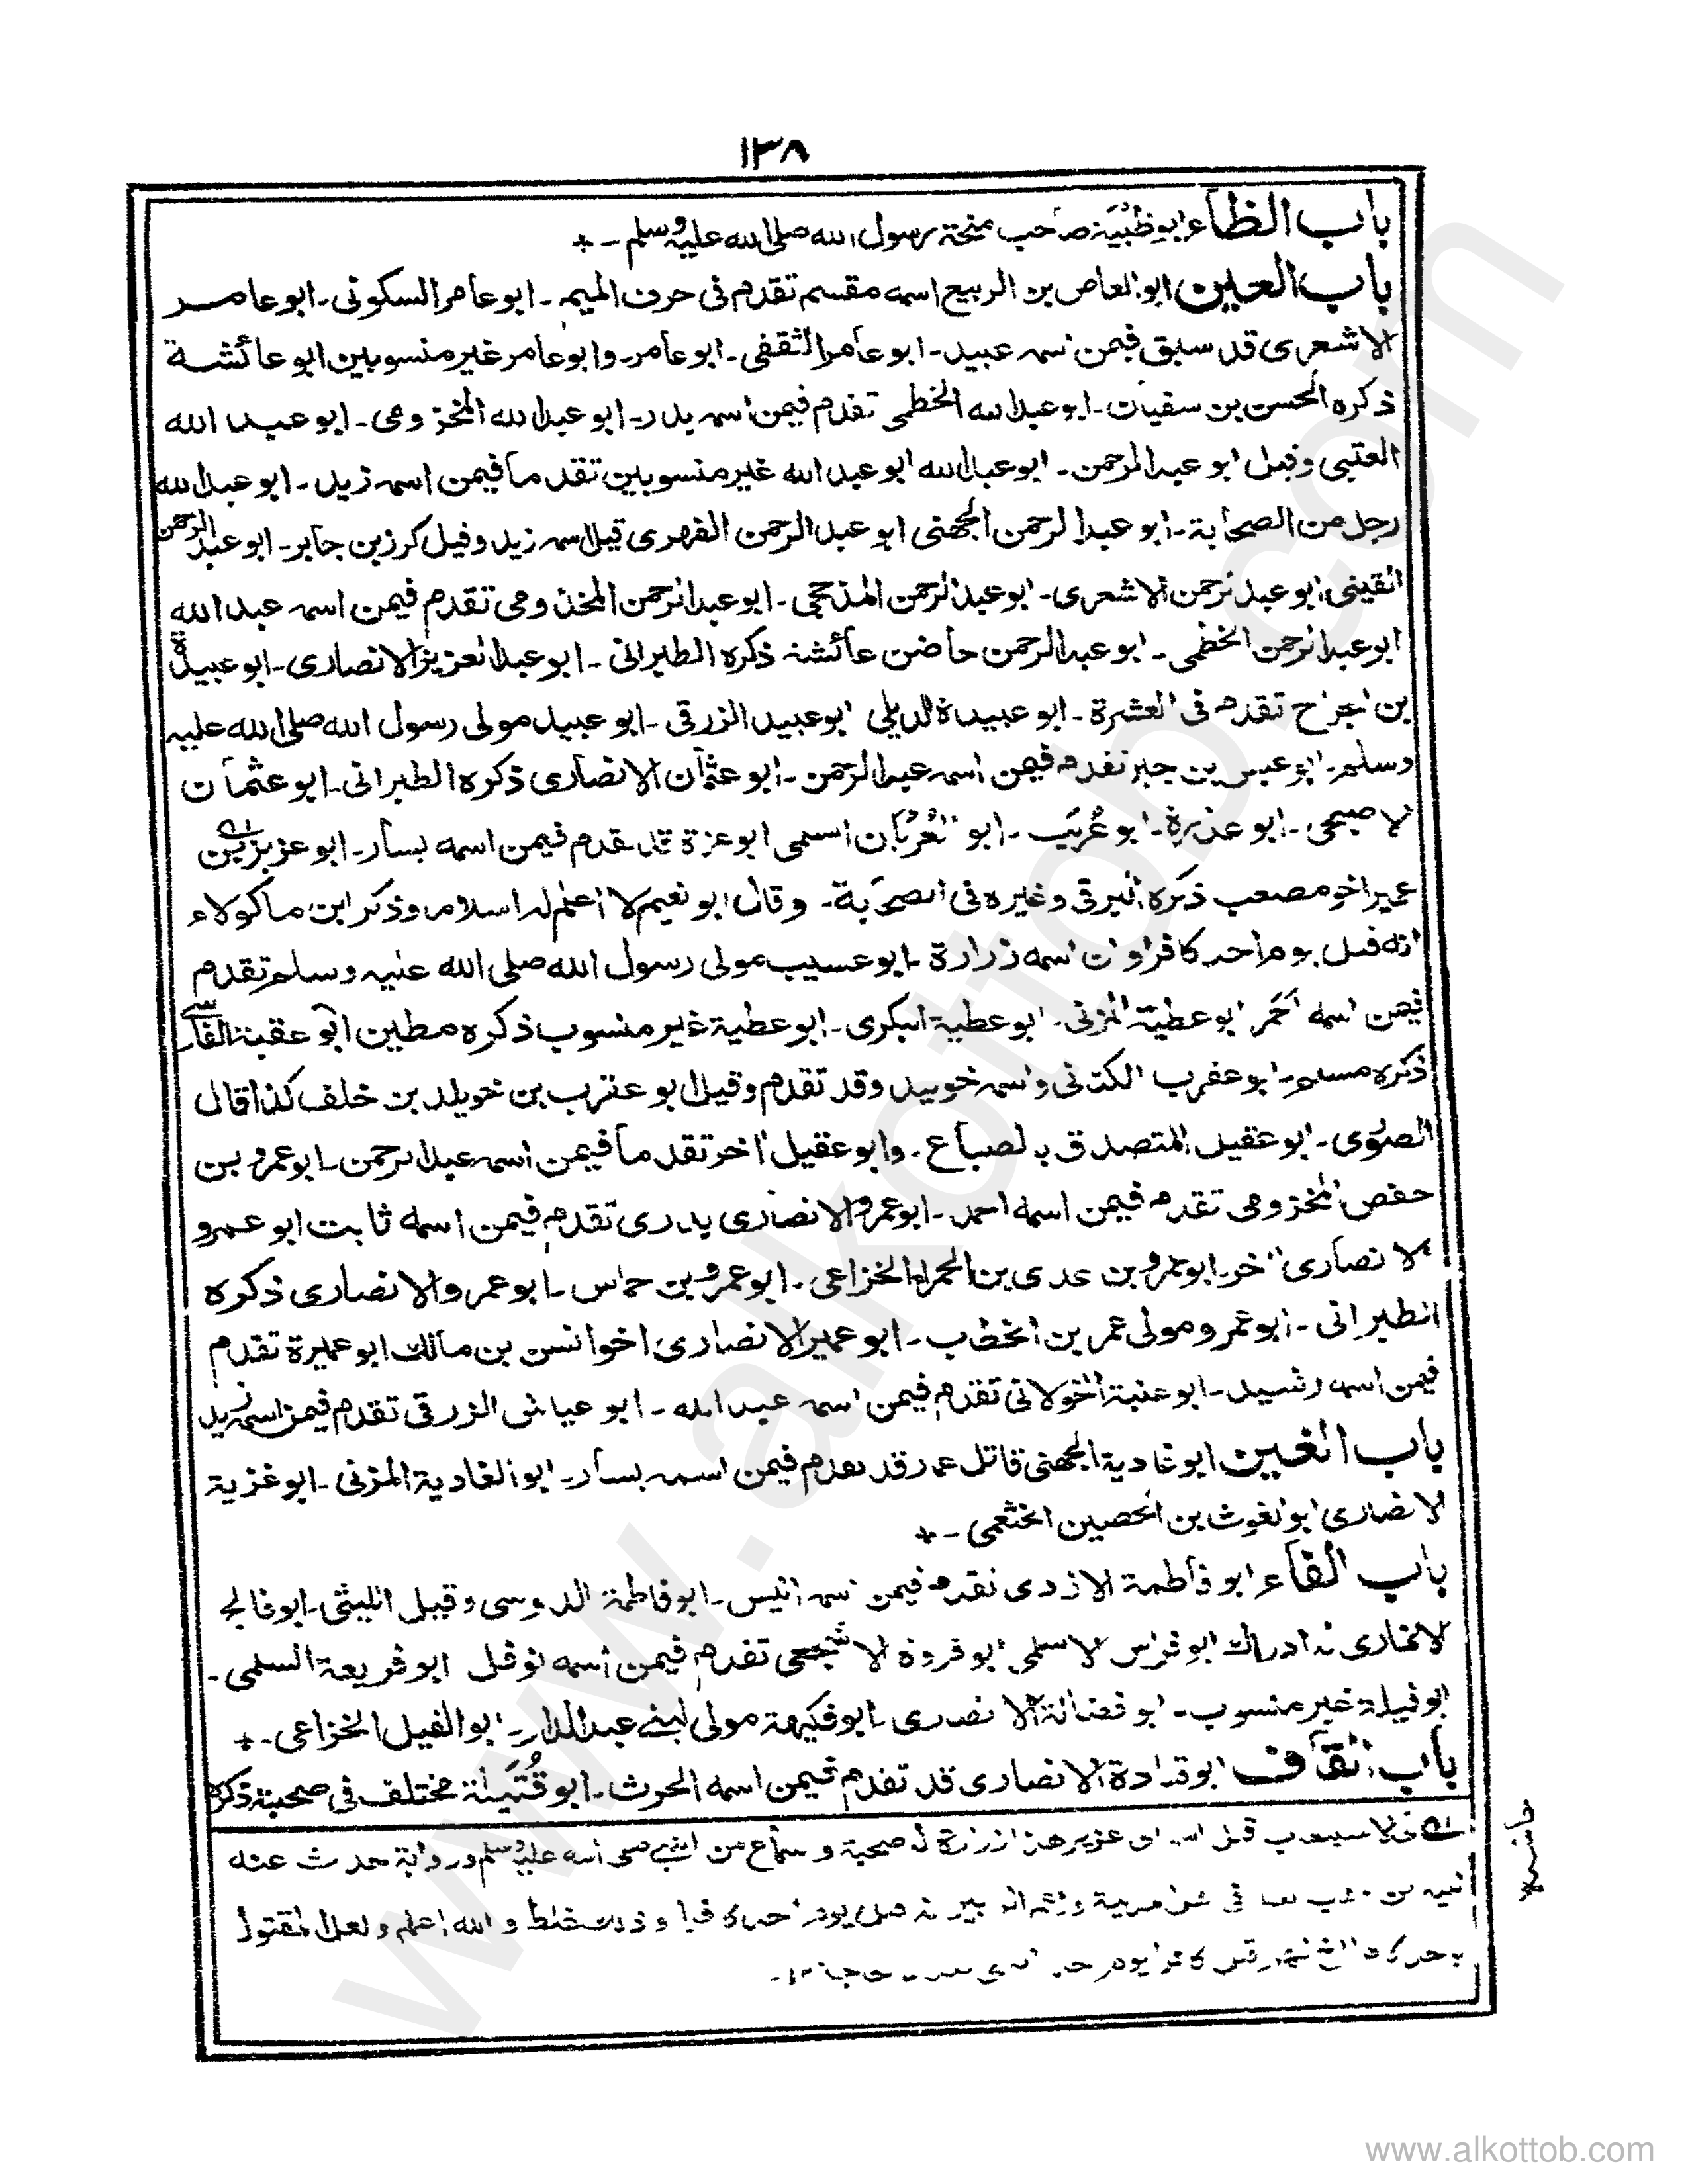 ١٣٨
باب الظاء ابو ظبية صاحب منحة رسول الله صلى الله عليه وسلم ـ +
باب العين ابو العاص بن الربيع اسمه مقسم تقدم فى حرف الميم ـ ابو عامر السكونى ـ ابو عامر
الاشعرى قد سبق فيمن اسمه عبيد ـ ابو عامر الثقفى ـ ابو عامر ـ وابو عامر غير منسوبين ابو عائشة
ذكره الحسن بن سفيان ـ ابو عبد الله الخطمى تقدم فيمن اسمه بدر ـ ابو عبد الله المخزومى ـ ابو عبد الله
العتبى وقيل ابو عبد الرحمن ـ ابو عبد الله ابو عبد الله غير منسوبين تقدما فيمن اسمه زيد ـ ابو عبد الله
رجل من الصحابة ـ ابو عبد الرحمن الجهنى ابو عبد الرحمن الفهرى قيل اسمه زيد وقيل كرز بن جابر ـ ابو عبد الرحمن
القينى ابو عبد الرحمن الاشعرى ـ ابو عبد الرحمن المذحجى ـ ابو عبد الرحمن المخذومى تقدم فيمن اسمه عبد الله
ابو عبد الرحمن الخطمى ـ ابو عبد الرحمن حاضن عائشة ذكره الطبرانى ـ ابو عبد العزيز الانصارى ـ ابو عبيدة
بن الجراح تقدم فى العشرة ـ ابو عبيدة الديلى ابو عبيد الزرقى ـ ابو عبيد مولى رسول الله صلى الله عليه
وسلم ـ ابو عبس بن جبر تقدم فيمن اسمه عبد الرحمن ـ ابو عثمان الانصارى ذكره الطبرانى ـ ابو عثمان
الاصبحى ـ ابو عذرة ـ ابو عُرَيب ـ ابو العُرْيَان اسلمى ابو عزة قد تقدم فيمن اسمه يسار ـ ابو عزيز بن
عمير اخو مصعب ذكره البرقى وغيره فى الصحابة ـ وقال ابو نعيم لا اعلم له اسلاما وذكر ابن ماكولاء
انه قتل يوم احد كافرا وان اسمه زرارة ـ ابو عسيب مولى رسول الله صلى الله عليه وسلم تقدم
فيمن اسمه احمر ابو عطية المزنى ـ ابو عطية البكرى ـ ابو عطية غير منسوب ذكره مطين ابو عقبة الفارسى
ذكره مسلم ـ ابو عقرب الكنانى واسمه خويلد وقد تقدم وقيل ابو عقرب بن خويلد بن خلف كذا قال
الصوى ـ ابو عقيل المتصدق بالصاع ـ وابو عقيل اخر تقدما فيمن اسمه عبد الرحمن ـ ابو عمرو بن
حفص المخزومى تقدم فيمن اسمه احمد ـ ابو عمرو الانصارى بدرى تقدم فيمن اسمه ثابت ابو عمرو
الانصارى اخر ـ ابو عمرو بن عدى بن الحمراء الخزاعى ـ ابو عمرو بن حماس ـ ابو عمرو الانصارى ذكره
الطبرانى ـ ابو عمرو مولى عمر بن الخطاب ـ ابو عمير الانصارى اخو انس بن مالك ابو عميرة تقدم
فيمن اسمه رشيد ـ ابو عنبة الخولانى تقدم فيمن اسمه عبد الله ـ ابو عياش الزرقى تقدم فيمن اسمه زيد
باب الغين ابو غادية الجهنى قاتل عمار قد تقدم فيمن اسمه يسار ـ ابو الغادية المزنى ـ ابو غزية
الانصارى ابو الغوث بن الحصين الخثعمى ـ +
باب الفاء ابو فاطمة الازدى تقدم فيمن اسمه انيس ـ ابو فاطمة الدوسى وقيل الليثى ـ ابو فالج
الانمارى له ادراك ابو فراس الاسلمى ابو فروة الاشجعى تقدم فيمن اسمه نوفل ابو فريعة السلمى ـ
ابو فسيلة غير منسوب ـ ابو فضالة الانصارى ـ ابو فكيهة مولى لبنى عبد الدار ـ ابو الفيل الخزاعى ـ +
باب القاف ابو قتادة الانصارى قد تقدم فيمن اسمه الحرث ـ ابو قُتَيلة مختلف فى صحبته ذكره
فى الاستيعاب قيل اسم ابى عزيز هذا زرارة له صحبة وسماع من النبى صلى الله عليه وسلم ورواية حدث عنه
نبيه بن وهب فى اهل المدينة وزعم الزبير انه قتل يوم احد كافرا وذلك غلط والله اعلم ولعل المقتول
باحد كافرا
حاشيه
www.alkottob.com
www.alkottob.com